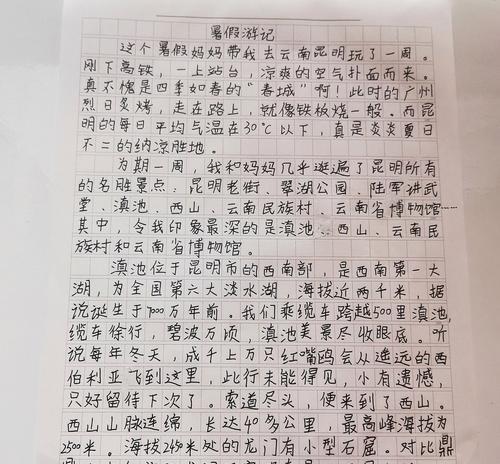 暑假游记
这个暑假妈妈带我去云南昆明玩了一周。
刚下高铁，一上站台，凉爽的空气扑面而来。
真不愧是四季如春的“春城”啊！此时的广州
烈日炙烤，走在路上，就像铁板烧一般。而昆
明的每日平均气温在30℃以下，真是炎炎夏日
不二的纳凉胜地。
为期一周，我和妈妈几乎逛遍了昆明所有
的名胜景点：昆明老街、翠湖公园、陆军讲武
堂、滇池、西山、云南民族村、云南省博物馆……
其中，令我印象最深的是滇池、西山、云南民
族村和云南省博物馆。
滇池位于昆明市的西南部，是西南第一大
湖，为全国第六大淡水湖，海拔近两千米，据
说诞生于7000万年前。我们乘缆车跨越500里滇池，
缆车徐行，碧波万顷，滇池美景尽收眼底。听
说每年冬天，成千上万只红嘴鸥会从遥远的西
伯利亚飞到这里，此行未能得见，小有遗憾，
只好留待下次了。索道尽头，便来到了西山。
西山山脉连绵，长达40多公里，最高峰海拔为
2500米。海拔2450米处的龙门有小型石窟。对比鼎